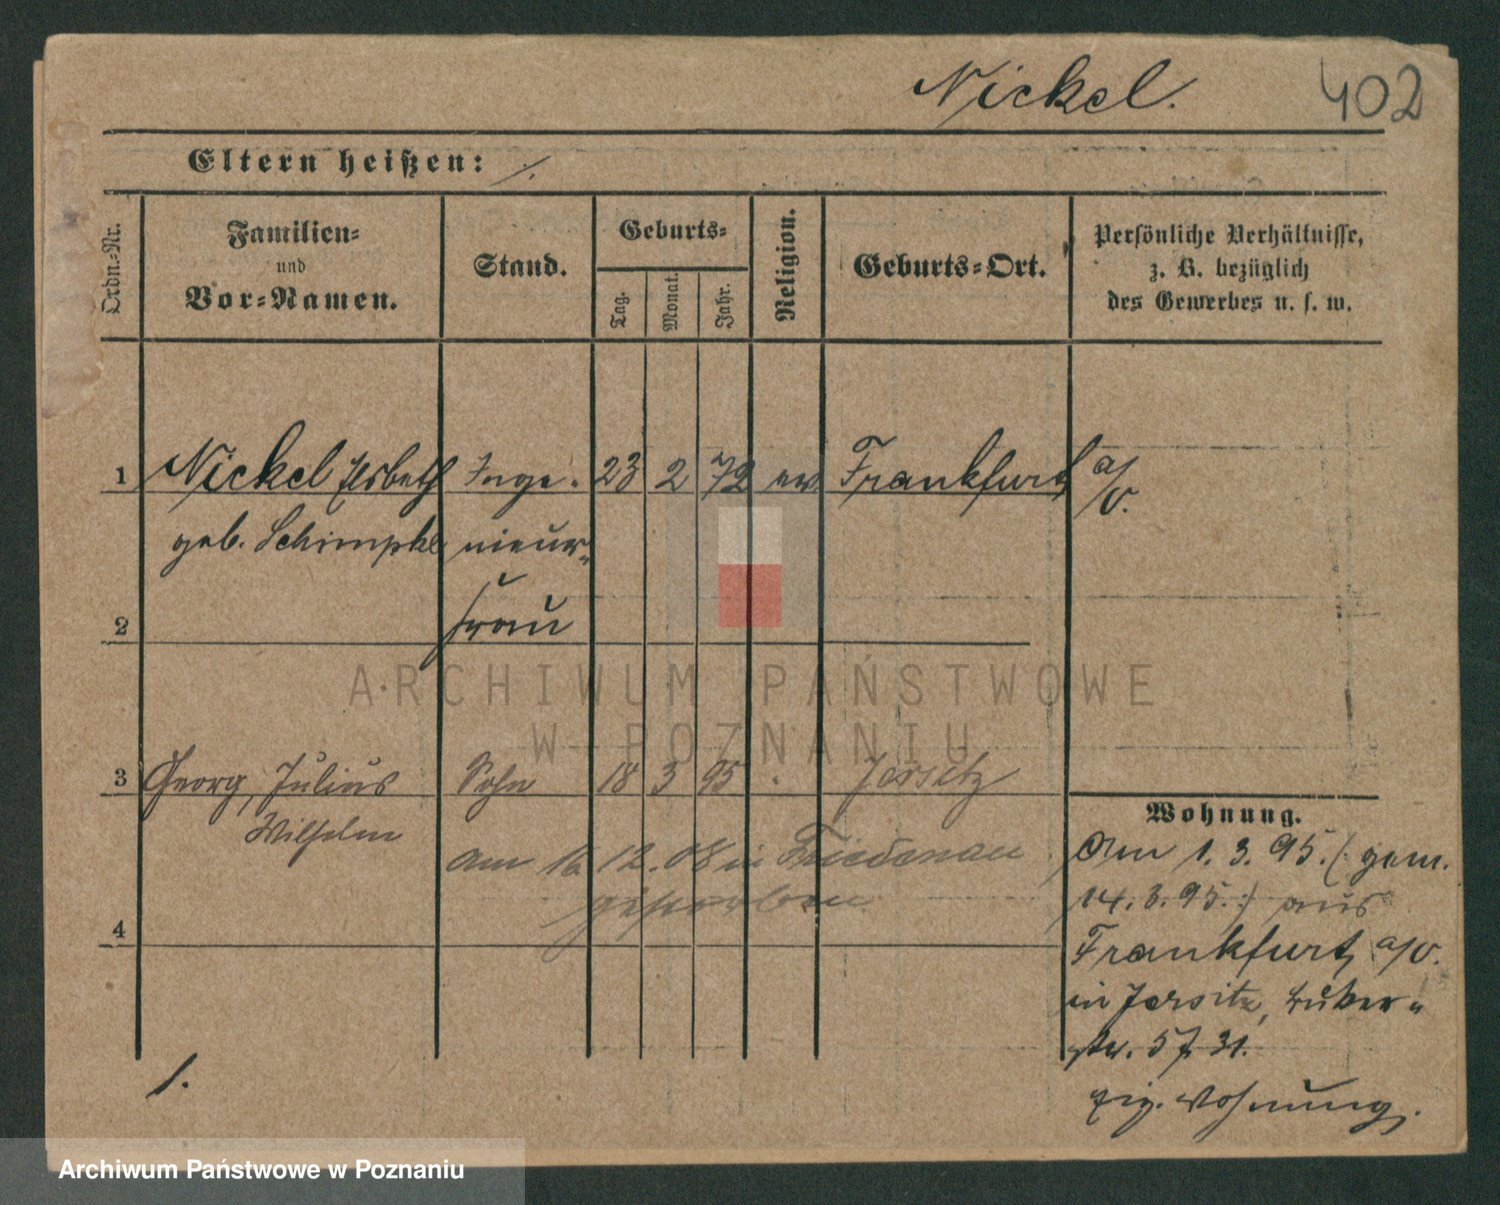 Nickel.
402
Eltern heißen: ./.
Ordn.-Nr.
Familien-
und
Vor-Namen.
Stand.
Geburts-
Tag.
Monat.
Jahr.
Religion.
Geburts-Ort.
Persönliche Verhältnisse,
z. B. bezüglich
des Gewerbes u. s. w.
1 Nickel Elsbeth Inge- 23 2 72 ev. Frankfurt a/O.
geb. Schimpke nieur-
2 frau
ARCHIWUM PAŃSTWOWE
W POZNANIU
3 Georg, Julius Sohn 18 3 95 Jersitz
Wilhelm
am 16 12. 08 in Friedenau
gestorben.
4
Wohnung.
Am 1. 3. 95. (: gem.
14. 3. 95. :) aus
Frankfurt a/O.
in Jersitz,
str. 57 31.
eig. Wohnung.
1.
Archiwum Państwowe w Poznaniu